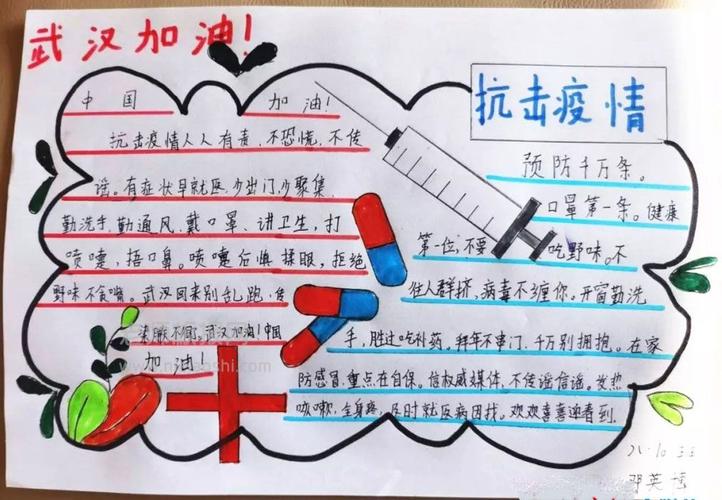 武汉加油!
抗击疫情
中国 加油!
抗击疫情人人有责、不恐慌、不传
谣。有症状早就医,少出门,少聚集、
勤洗手、勤通风、戴口罩、讲卫生,打
喷嚏,捂口鼻。喷嚏后慎揉眼,拒绝
野味不贪嘴。武汉回来别乱跑,传
不同。武汉加油!中国
加油!
预防千万条。
口罩第一条。健康
第一位,不要 吃野味。不
往人群挤,病毒不缠你。开窗勤洗
手,胜过吃补药。拜年不串门,千万别拥抱。在家
防感冒,重点在自保。信权威媒体,不传谣信谣。发热
咳嗽,全身疼,及时就医病因找。欢欢喜喜迎看到.